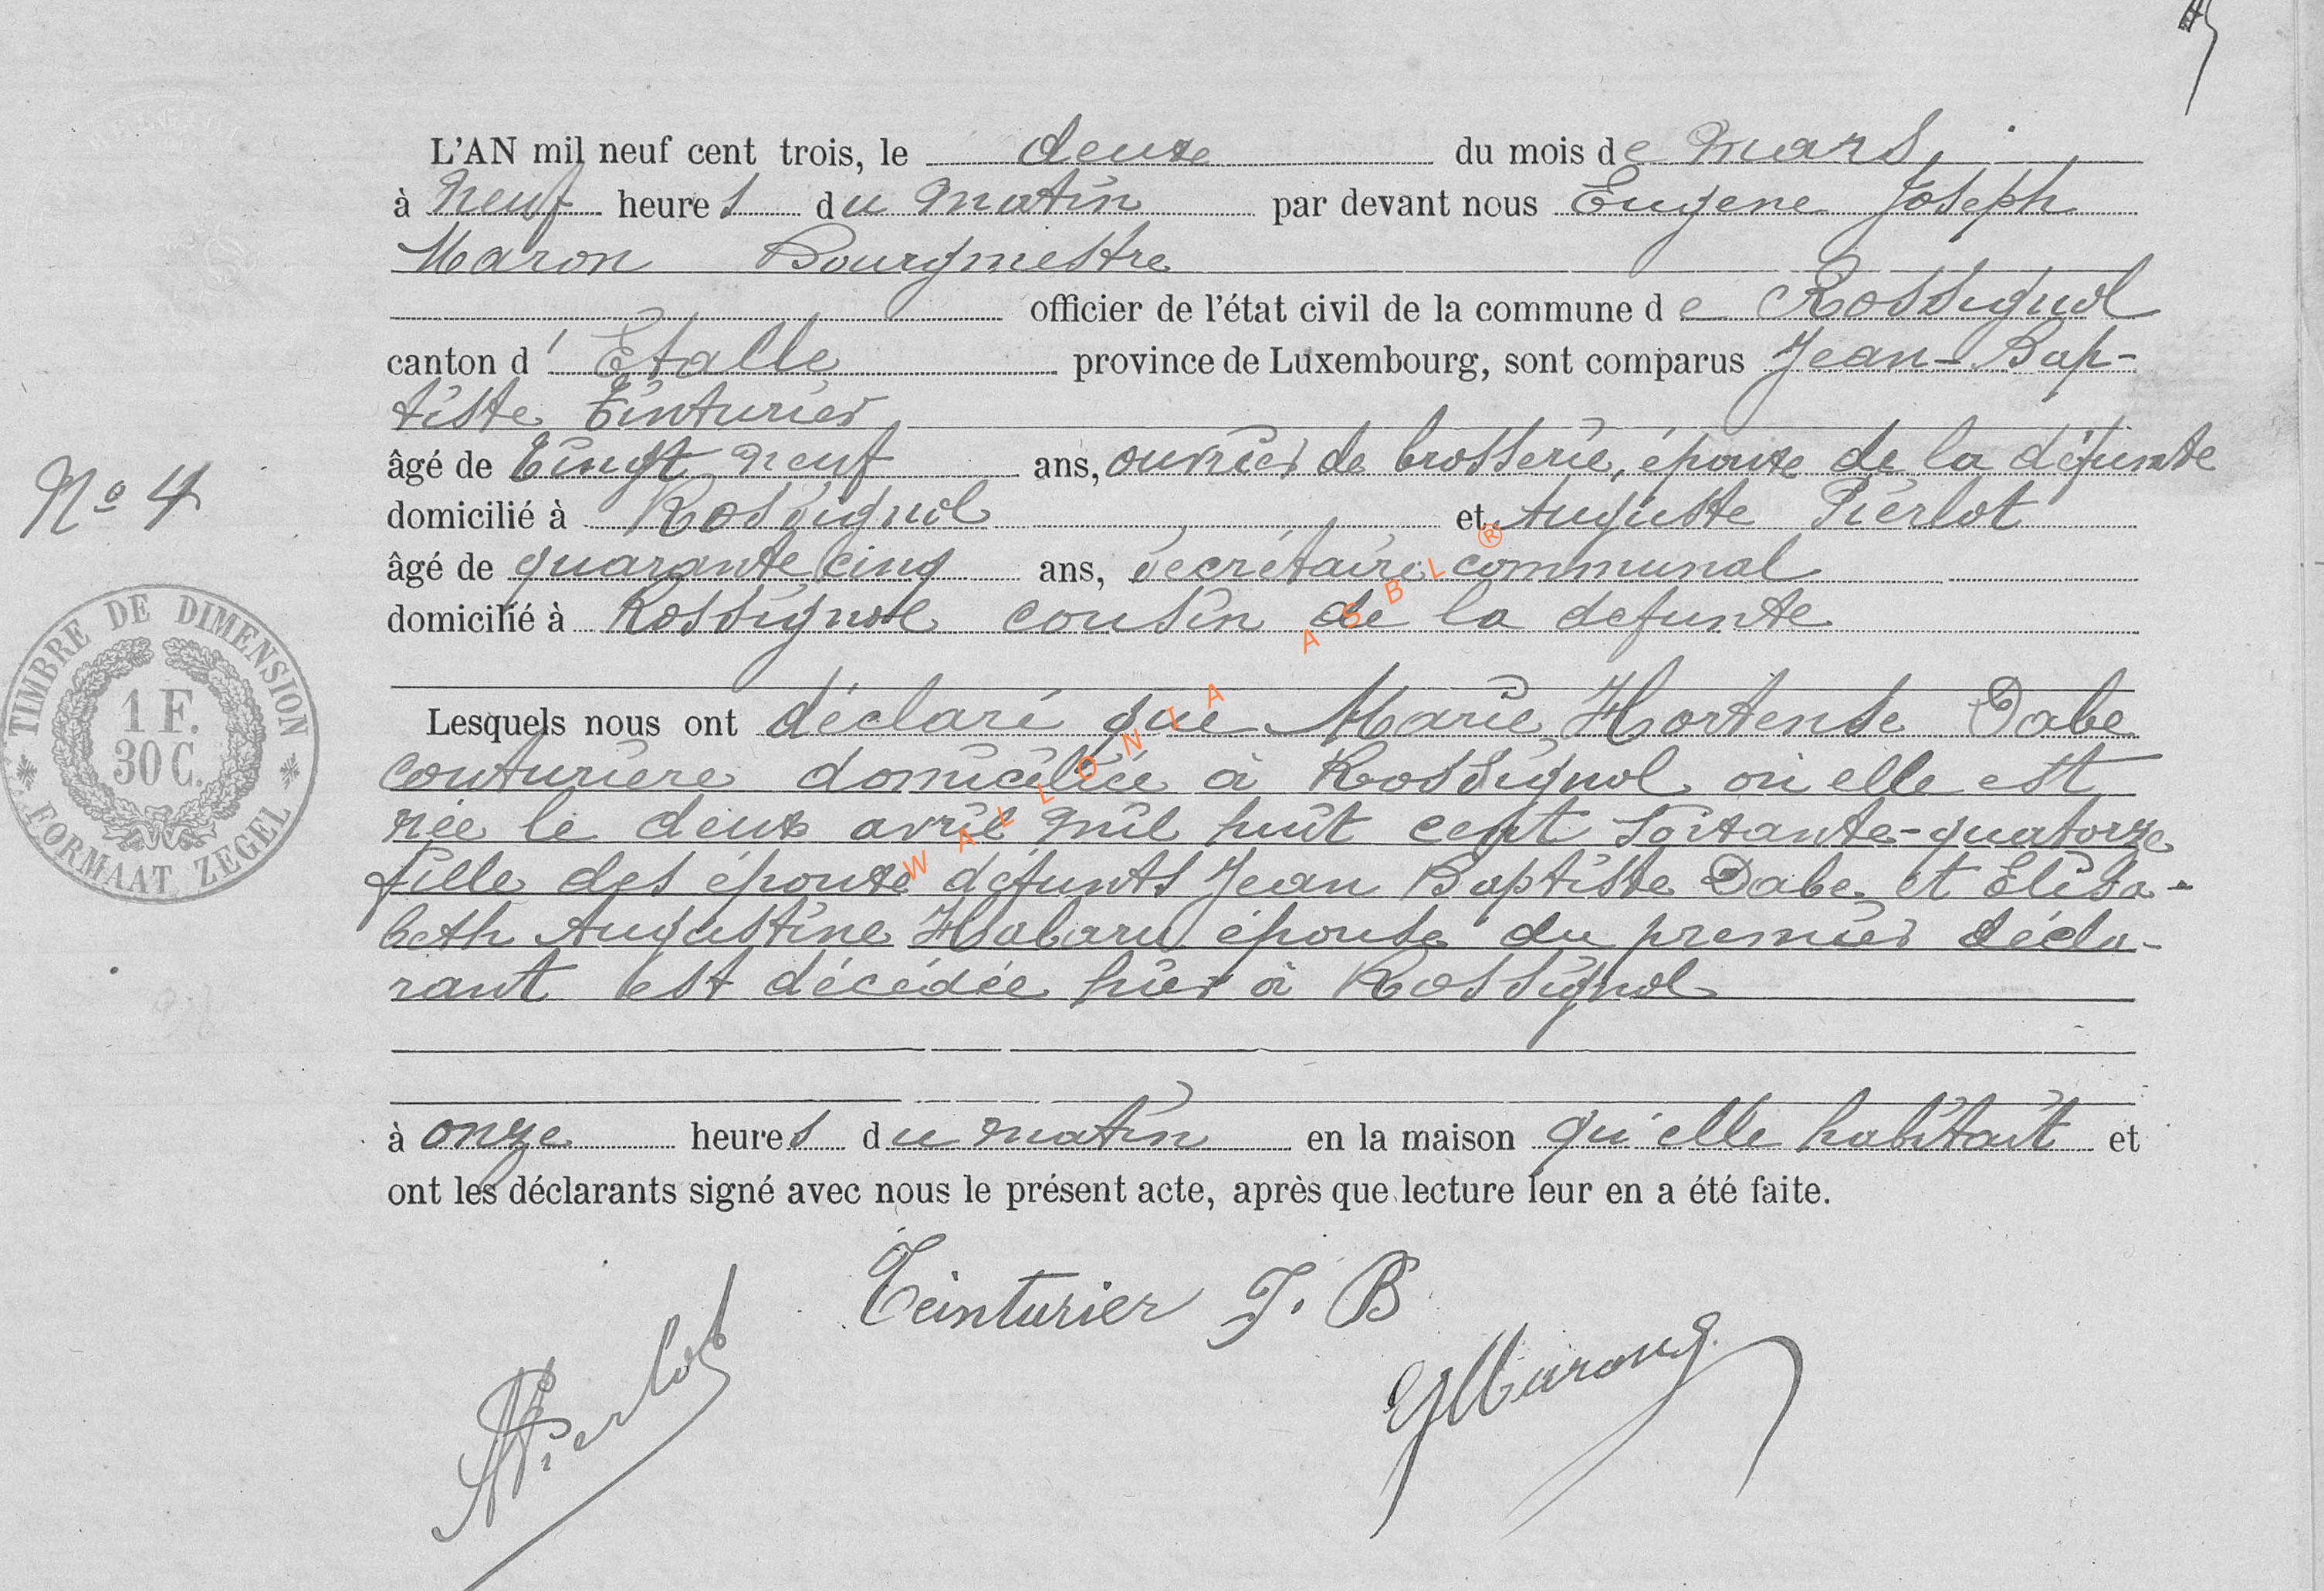 L'AN mil neuf cent trois, le deux du mois de Mars
à neuf heures du matin par devant nous Eugene Joseph
Maron Bourgmestre
officier de l'état civil de la commune de Rossignol
canton d'Etalle province de Luxembourg, sont comparus Jean-Bap-
tiste Tinturier
âgé de Vingt neuf ans, ouvrier de brosserie, époux de la défunte
domicilié à Rossignol et Auguste Pierlot
N° 4
âgé de quarante cinq ans, secrétaire communal
domicilié à Rossignol cousin de la defunte
Lesquels nous ont déclaré que Marie Hortense Dabe
couturière domiciliée à Rossignol où elle est
née le deux avril mil huit cent soixante-quatorze
fille des époux défunts Jean Baptiste Dabe et Elisa-
beth Augustine Habaru épouse du premier décla-
rant est décédée hier à Rossignol
à onze heures du matin en la maison qu'elle habitait et
ont les déclarants signé avec nous le présent acte, après que lecture leur en a été faite.
Teinturier J. B
APierlot
EJMaron
TIMBRE DE DIMENSION
1 F.
30 C.
FORMAAT ZEGEL
WALLONIA ASBL ®